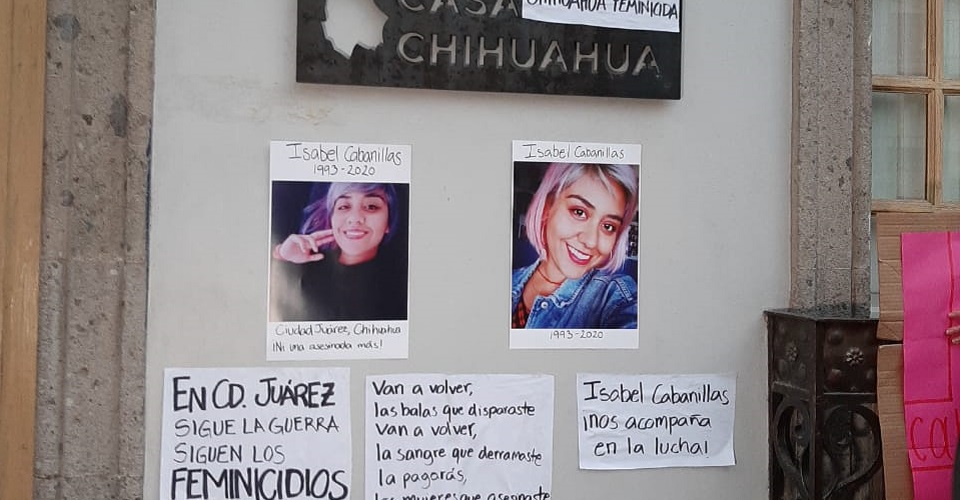 CASA
CHIHUAHUA FEMINICIDA
CHIHUAHUA
Isabel Cabanillas
1993-2020
Ciudad Juárez, Chihuahua
¡Ni una asesinada más!
Isabel Cabanillas
1993-2020
EN CD. JUÁREZ
SIGUE LA GUERRA
SIGUEN LOS
FEMINICIDIOS
Van a volver,
las balas que disparaste
Van a volver,
la sangre que derramaste
la pagarás,
las mujeres que asesinaste
Isabel Cabanillas
¡nos acompaña
en la lucha!